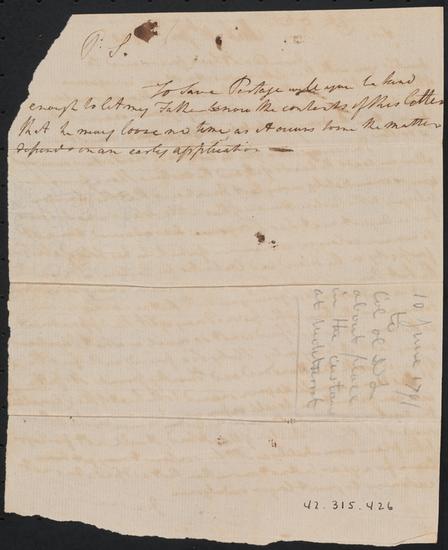 P: S.
To Save Postage will you be kind
enough to let my Father know the contents of this letter
that he may loose no time as it occurs to me the matter
depends on an early application
10 June 1791
to
Col
about place
in the custom
at
42.315.426